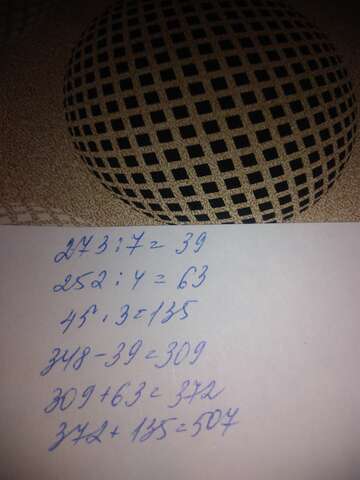 273:7=39
252:4=63
45·3=135
348-39=309
309+63=372
372+135=507